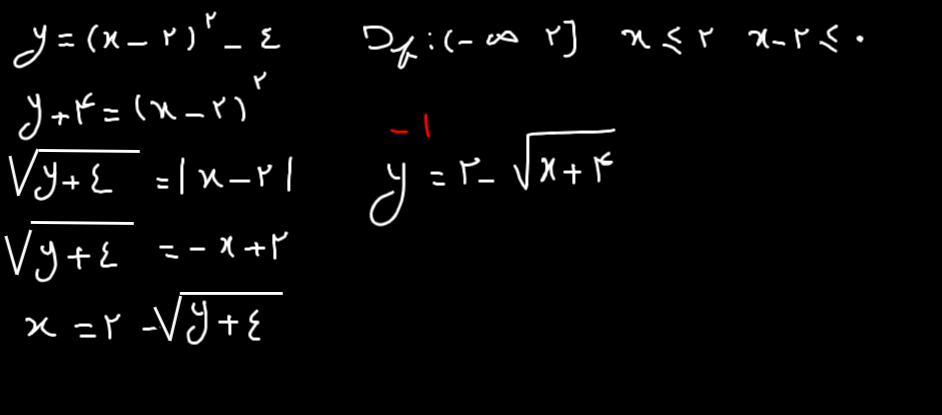 y = (x - ۲)^۲ - ٤
y + ۴ = (x - ۲)^۲
√(y + ٤) = |x - ۲|
√(y + ٤) = -x + ۲
x = ۲ - √(y + ٤)
D_f : (-∞ ۲] x ≤ ۲ x - ۲ ≤ ۰
y^-۱ = ۲ - √(x + ۴)